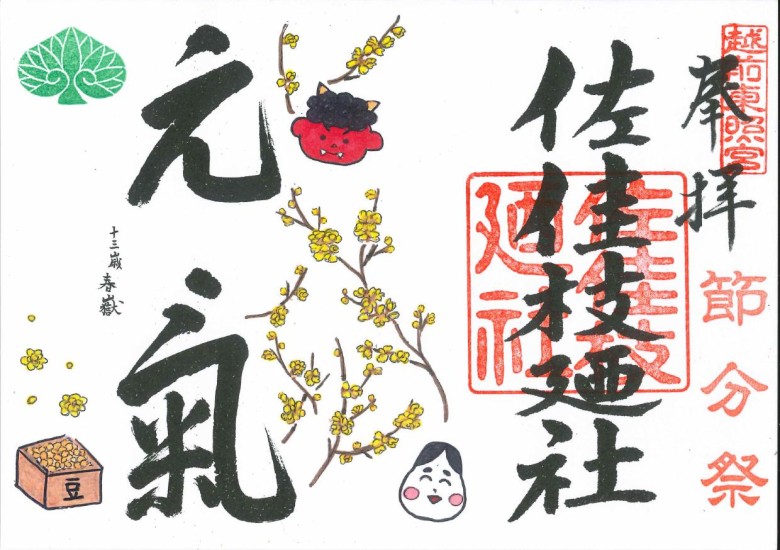 越前東照宮
奉拝
節分祭
佐佳枝廼社
佐佳枝
廼社
元氣
十三歳 春嶽
豆